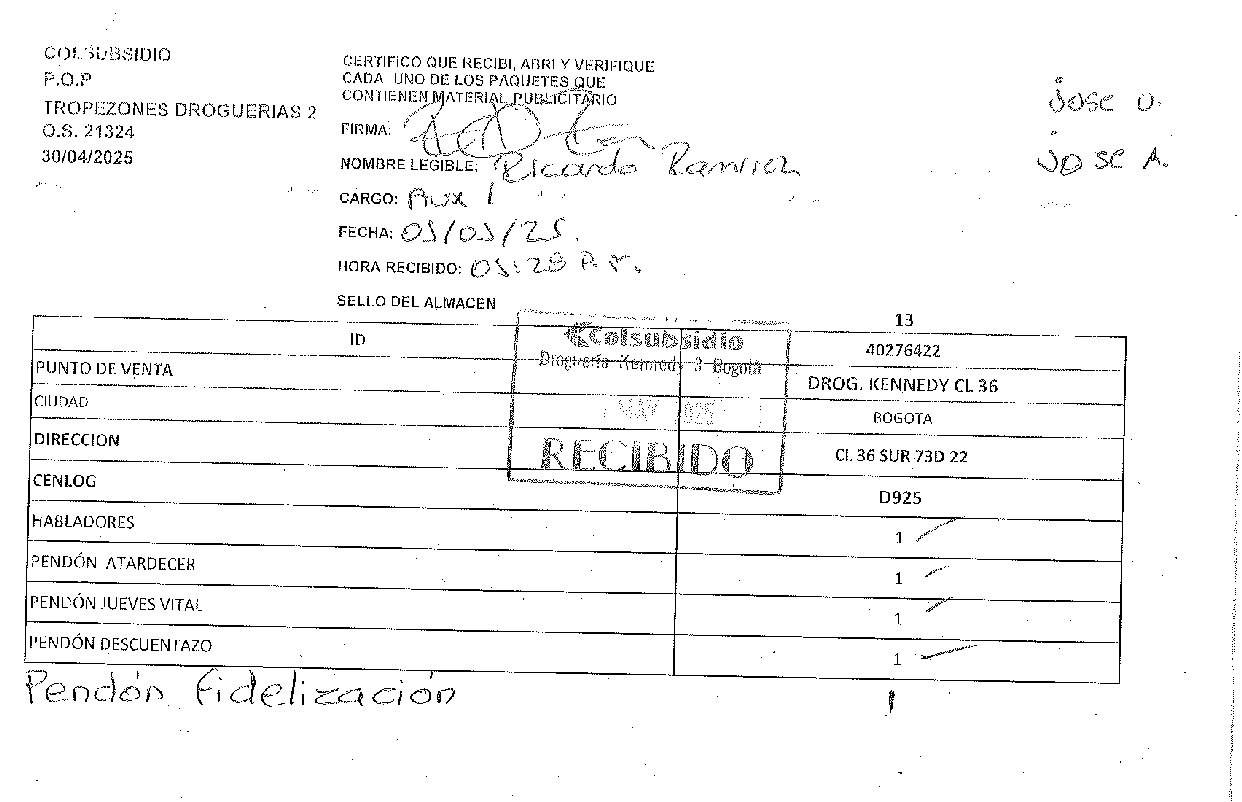 COLSUBSIDIO
P.O.P
TROPEZONES DROGUERIAS 2
O.S. 21324
30/04/2025
CERTIFICO QUE RECIBI, ABRI Y VERIFIQUE
CADA UNO DE LOS PAQUETES QUE
CONTIENEN MATERIAL PUBLICITARIO
FIRMA:
NOMBRE LEGIBLE: Ricardo Ramirez
CARGO: Aux 1
FECHA: 05/05/25.
HORA RECIBIDO: 05:28
SELLO DEL ALMACEN
Jose U.
Jose A.
13
ID 40276422
PUNTO DE VENTA DROG. KENNEDY CL 36
CIUDAD BOGOTA
DIRECCION CL 36 SUR 73D 22
CENLOG D925
HABLADORES 1
PENDÓN ATARDECER 1
PENDÓN JUEVES VITAL 1
PENDÓN DESCUENTAZO 1
Pendón fidelización 1
Colsubsidio
Droguería Kennedy 3 Bogotá
MAY 2025
RECIBIDO